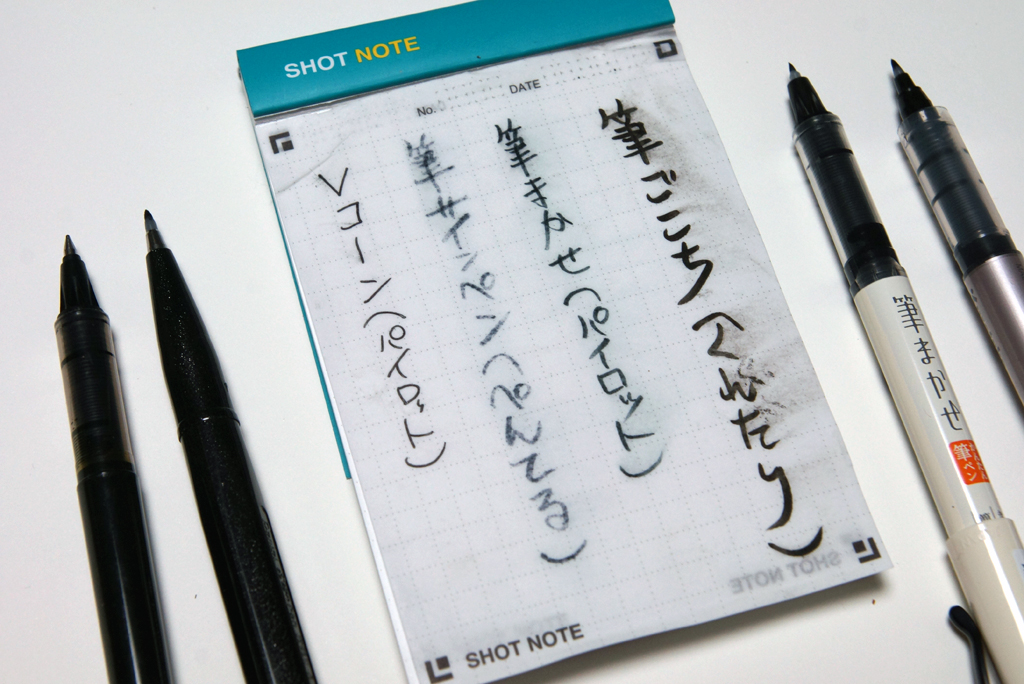 SHOT NOTE
No.
DATE
筆ごこち(くれたけ)
筆まかせ(パイロット)
筆サインペン(ぺんてる)
Vコーン(パイロット)
SHOT NOTE
SHOT NOTE
筆まかせ
かんたん
筆ペン